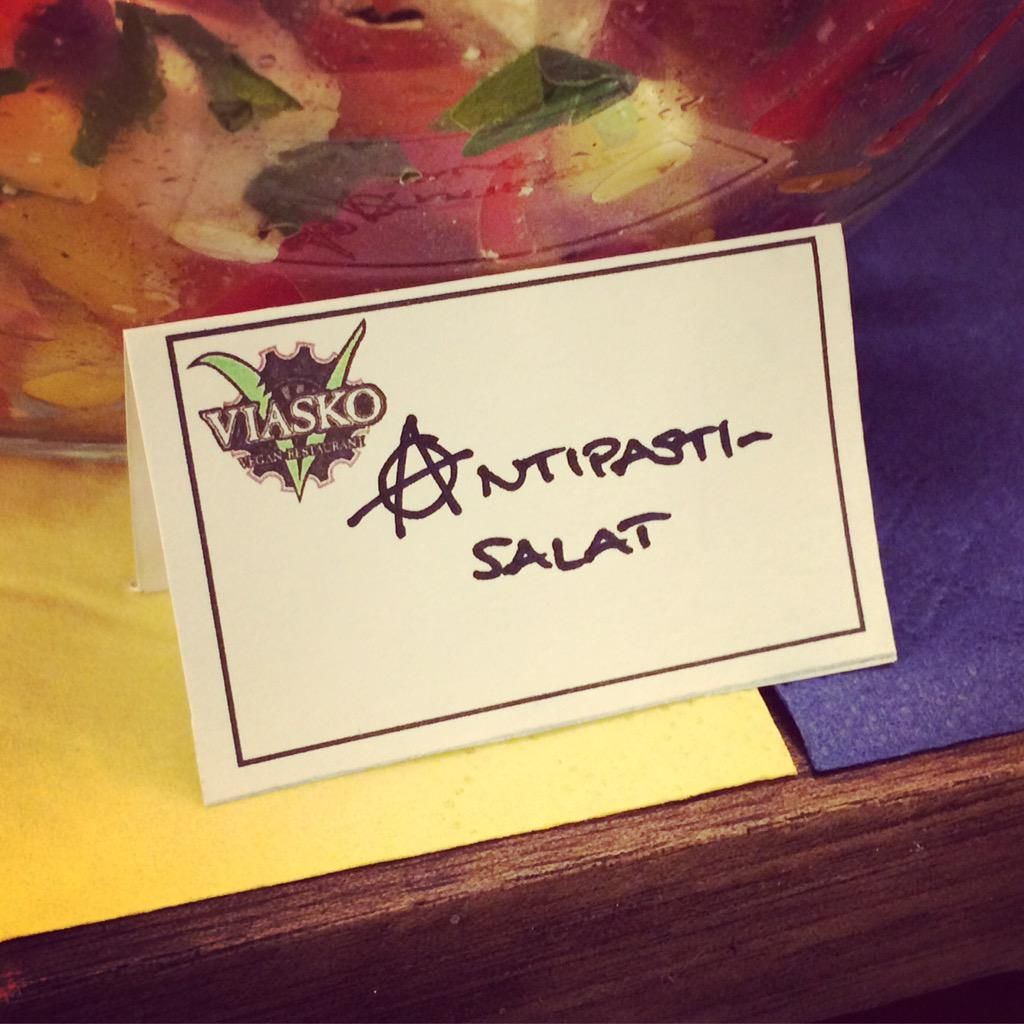 VIASKO
VEGAN RESTAURANT
ANTIPASTI-
SALAT